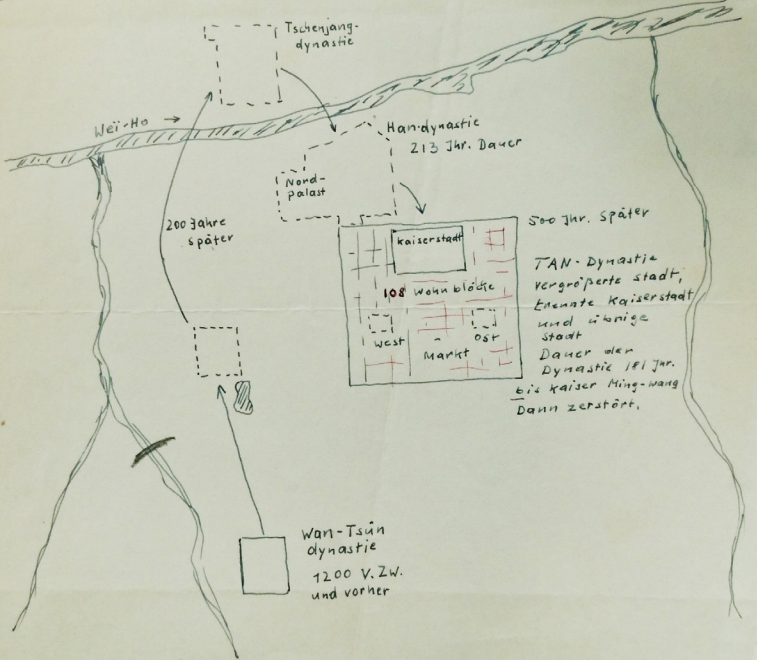 Tschenjang-
dynastie
Weï-Ho
Han-dynastie
213 Jhr. Dauer
Nord-
palast
200 Jahre
später
500 Jhr. später
Kaiserstadt
108 Wohnblöcke
West
Ost
Markt
TAN-Dynastie
vergrößerte stadt,
trennte Kaiserstadt
und übrige
stadt
Dauer der
Dynastie 181 Jhr.
bis Kaiser Ming-wang
Dann zerstört.
Wan-Tsün
dynastie
1200 V. ZW.
und vorher